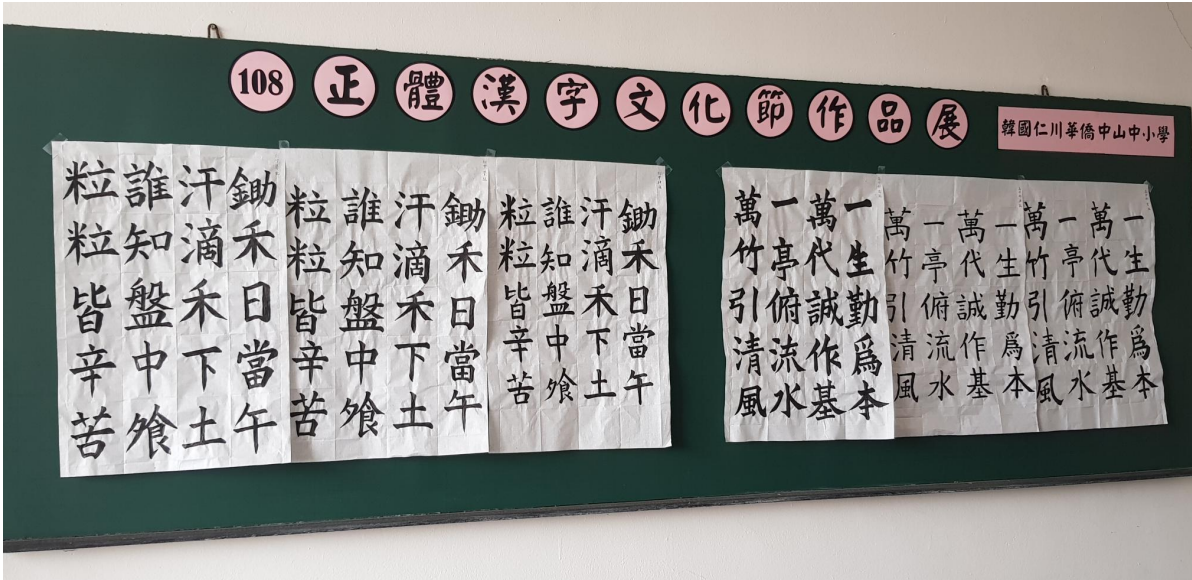 108 正體漢字文化節作品展
韓國仁川華僑中山中小學
鋤禾日當午
汗滴禾下土
誰知盤中飧
粒粒皆辛苦
鋤禾日當午
汗滴禾下土
誰知盤中飧
粒粒皆辛苦
鋤禾日當午
汗滴禾下土
誰知盤中飧
粒粒皆辛苦
一生勤爲本
萬代誠作基
一亭俯流水
萬竹引清風
一生勤爲本
萬代誠作基
一亭俯流水
萬竹引清風
一生勤爲本
萬代誠作基
一亭俯流水
萬竹引清風